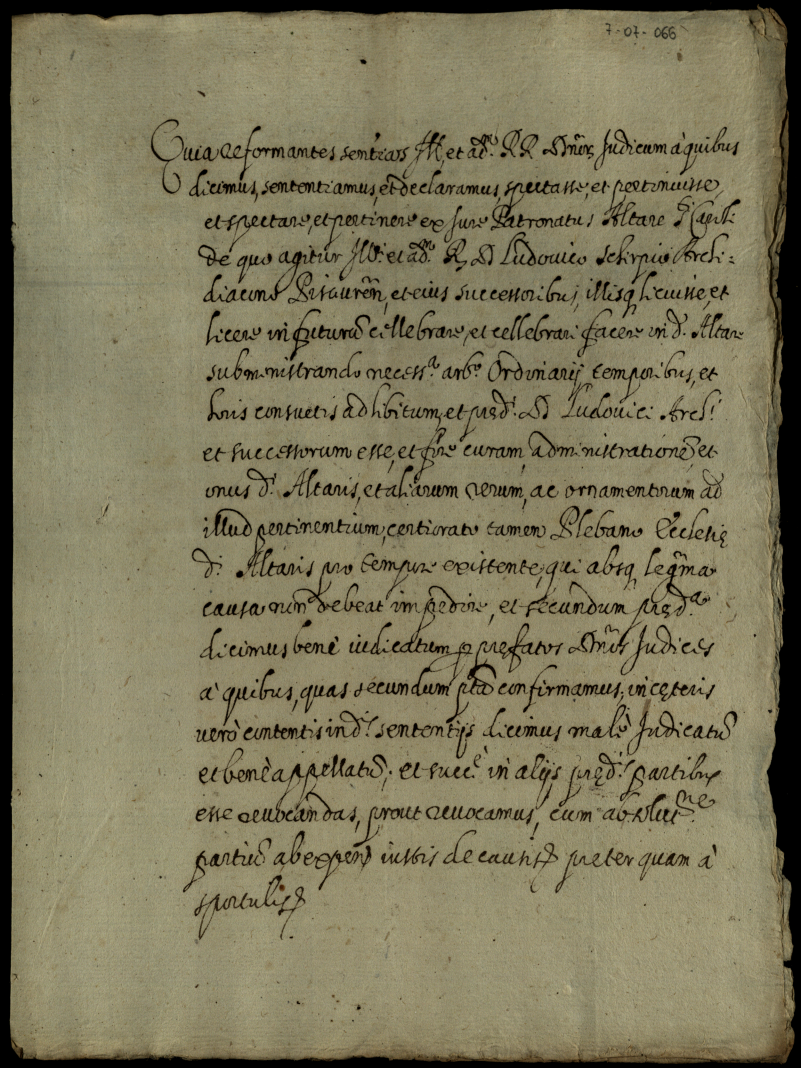 7-07-066
Quia reformantes sententias Ill. et ad. RR Dnor. Judicum à quibus
dicimus, sententiamus, et declaramus, spectasse, et pertinuisse,
et spectare, et pertinere ex Jure Patronatus Altare
de quo agitur Ill. et ad. R. D. Ludovico Schirpio Archi=
diacono Pisauren, et eius successoribus, illisq licuisse, et
licere in futurũ cellebrare, et cellebrari facere in d. Altare
subministrando necess.ª arb.º Ordinarij temporibus, et
horis consuetis ad libitum, et pręd. D. Ludovici Arch.
et successorum esse, et curam, administrationẽ, et
onus d. Altaris, et aliarum rerum, ac ornamentorum ad
illud pertinentium, certiorato tamen Plebano Ecclesię
d. Altaris pro tempore existente, qui absq legma
causa non debeat impedire, et secundum pręd.ª
dicimus benè iudicatum p pręfatos Dnos Judices
à quibus, quas secundum pta confirmamus, in cęteris
verò contentis in d. sententijs dicimus malè Judicatũ
et benè appellatũ, et succ.è in alijs pręd. partibus
esse revocandas, prout revocamus, cum absolut.ne
partiũ ab expens iustis de causis pręter quam à
sportulis